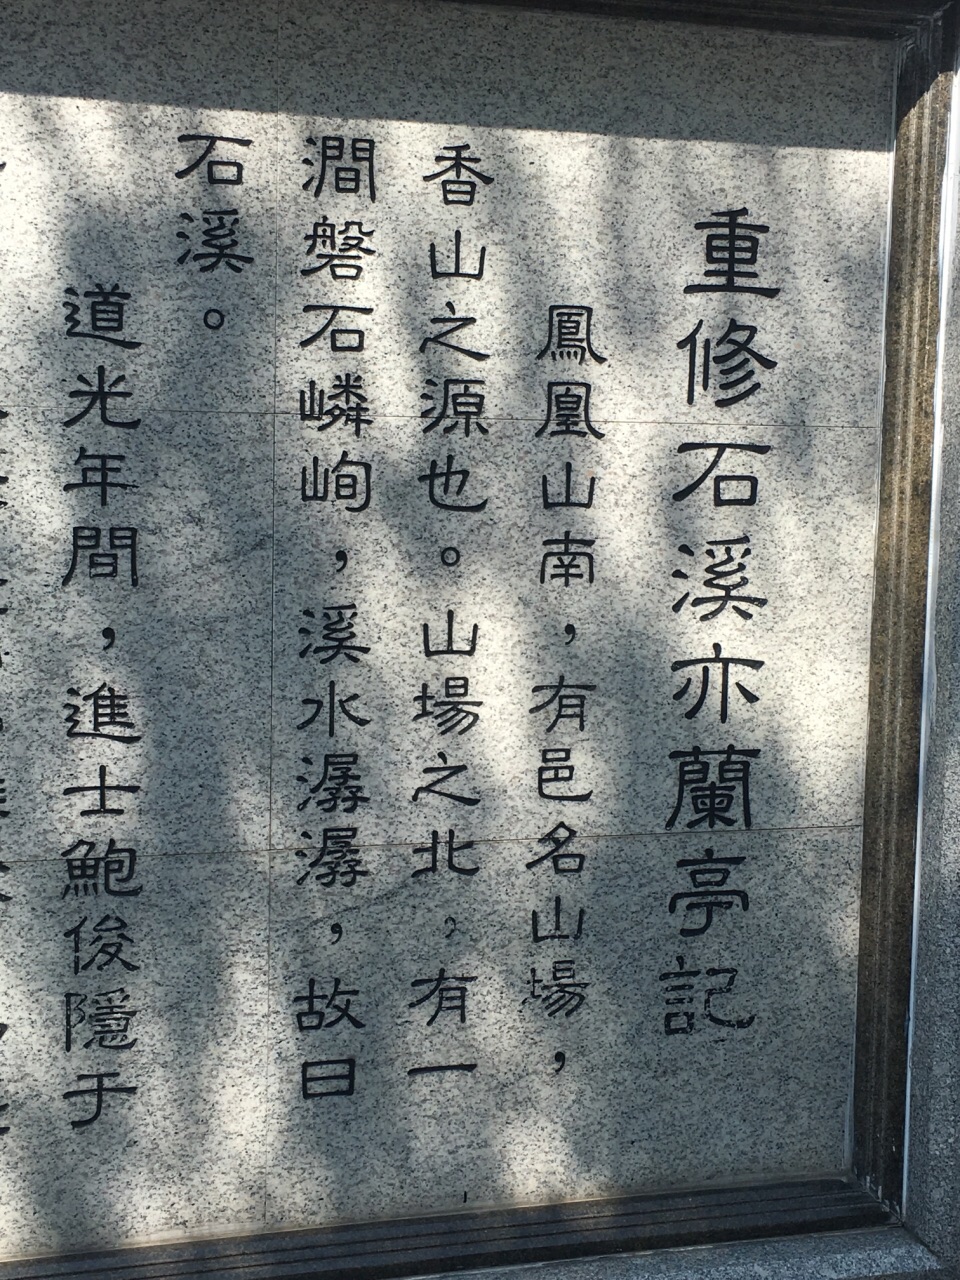 重修石溪亦蘭亭記
鳳凰山南，有邑名山場，
香山之源也。山場之北，有一
澗磐石嶙峋，溪水潺潺，故曰
石溪。
道光年間，進士鮑俊隱于